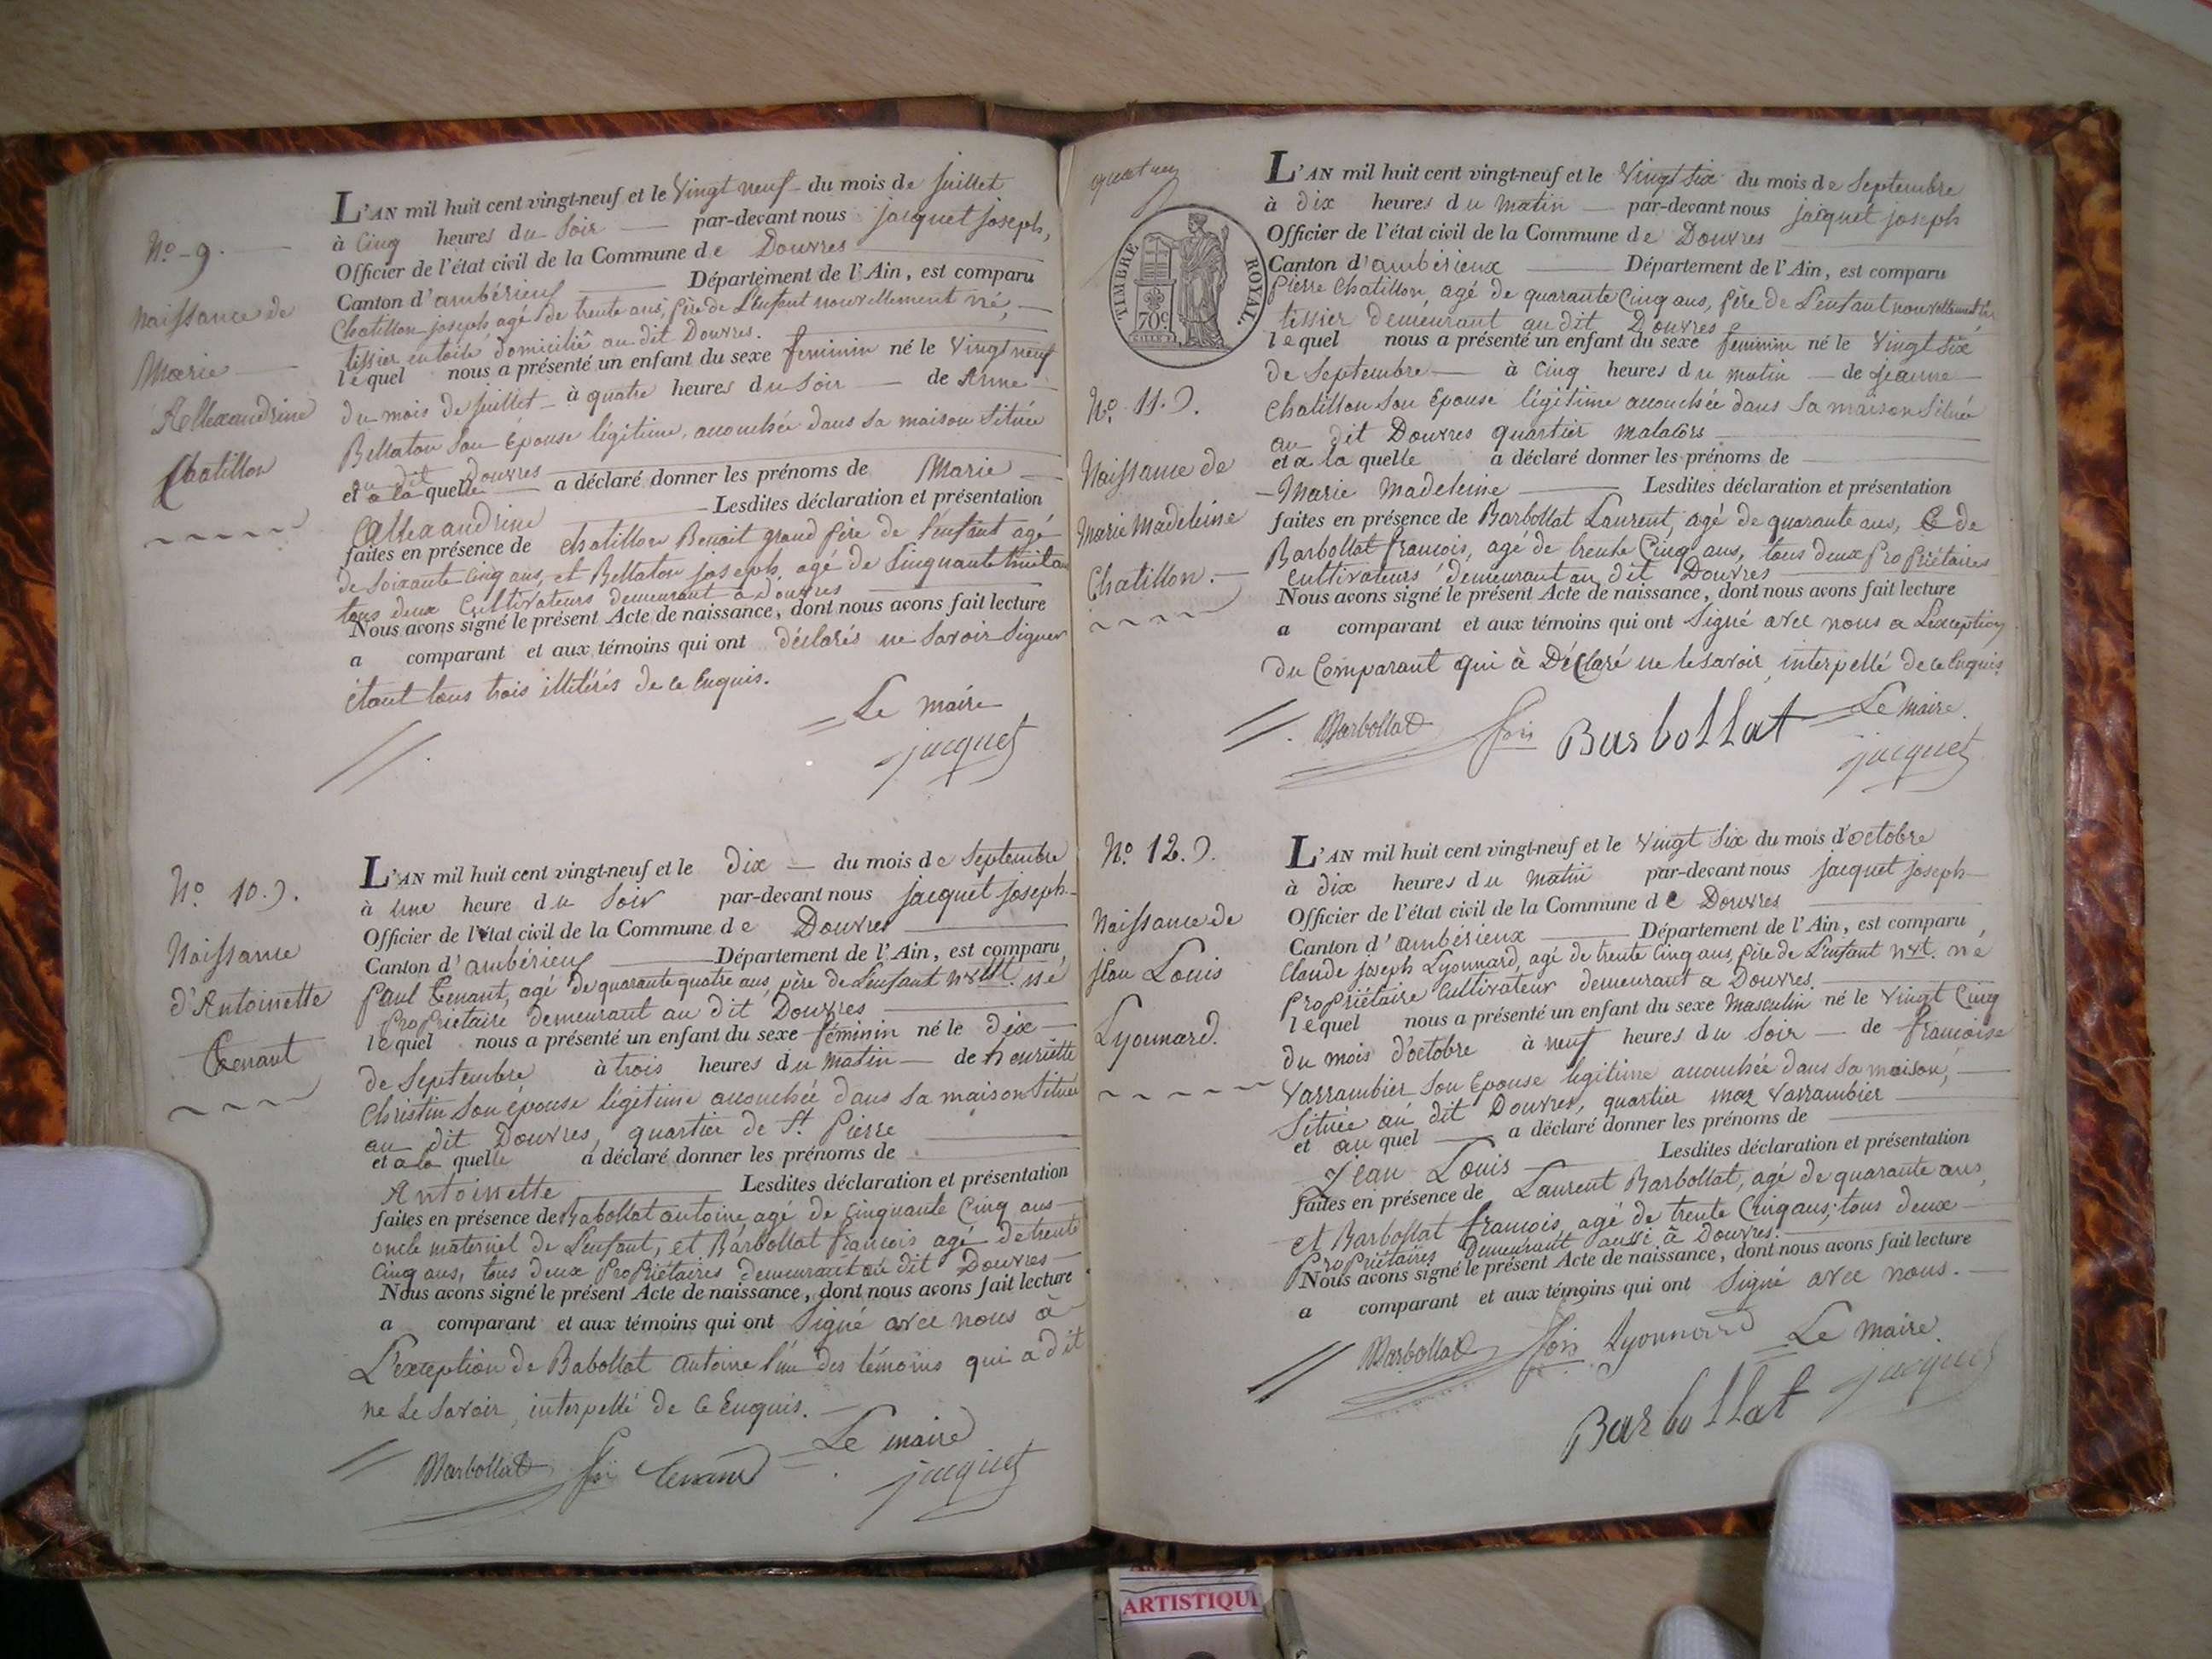 N.o - 9. -
Naissance de
Marie
Allexandrine
Chatillon
L'AN mil huit cent vingt-neuf et le Vingt neuf du mois de juillet
à Cinq heures du Soir par-devant nous jacquet joseph,
Officier de l'état civil de la Commune de Douvres
Canton d'ambérieux Département de l'Ain, est comparu
Chatillon joseph, agé de trente ans, père de L'enfant nouvellement né,
tissier en toile, domicilié au dit Douvres.
lequel nous a présenté un enfant du sexe feminin né le Vingt neuf
du mois de juillet à quatre heures du Soir de Anne
Bellaton son Épouse légitime, accouchée dans sa maison Située
au dit Douvres
et a la quelle a déclaré donner les prénoms de Marie
Allexandrine Lesdites déclaration et présentation
faites en présence de Chatillon Benoit grand père de l'enfant agé
de Soixante Cinq ans, et Bellaton joseph, agé de Cinquante huit an
tous deux Cultivateurs demeurant à Douvres
Nous avons signé le présent Acte de naissance, dont nous avons fait lecture
a comparant et aux témoins qui ont déclarés ne Savoir Signer
étant tous trois illitérés de ce Enquis.
Le maire
jacquet
N.o 10.
Naissance
d'Antoinette
Tenant
L'AN mil huit cent vingt-neuf et le Dix du mois de Septembre
à Une heure du Soir par-devant nous jacquet joseph
Officier de l'état civil de la Commune de Douvres
Canton d'ambérieux Département de l'Ain, est comparu
Paul Tenant, agé de quarante quatre ans, père de L'enfant né
Propriétaire demeurant au dit Douvres
lequel nous a présenté un enfant du sexe féminin né le Dix
de Septembre à trois heures du Matin de henriette
Christin Son épouse légitime accouchée dans sa maison Située
au dit Douvres, quartier de St. Pierre
et a la quelle a déclaré donner les prénoms de
Antoinette Lesdites déclaration et présentation
faites en présence de Babollat antoine agé de Cinquante Cinq ans
oncle maternel de L'enfant, et Barbollat françois agé de trente
Cinq ans, tous deux Propriétaires demeurant au dit Douvres
Nous avons signé le présent Acte de naissance, dont nous avons fait lecture
a comparant et aux témoins qui ont Signé avec nous à
L'exception de Babollat Antoine l'un des témoins qui a dit
ne le Savoir, interpellé de ce Enquis.
Le maire
Barbollat Tenant jacquet
TIMBRE ROYAL.
70c
N.o 11.
Naissance de
Marie Madeleine
Chatillon.
L'AN mil huit cent vingt-neuf et le Vingt Six du mois de Septembre
à Dix heures du Matin par-devant nous jacquet joseph
Officier de l'état civil de la Commune de Douvres
Canton d'ambérieux Département de l'Ain, est comparu
Pierre Chatillon, agé de quarante Cinq ans, père de L'enfant nouvellement né
tissier demeurant au dit Douvres
lequel nous a présenté un enfant du sexe feminin né le Vingt Six
de Septembre à Cinq heures du Matin de jeanne
Chatillon Son Épouse légitime accouchée dans sa maison Située
au dit Douvres quartier
et a la quelle a déclaré donner les prénoms de
Marie Madeleine Lesdites déclaration et présentation
faites en présence de Barbollat Laurent, agé de quarante ans, & de
Barbollat françois, agé de trente Cinq ans, tous deux Propriétaires
Cultivateurs demeurant au dit Douvres
Nous avons signé le présent Acte de naissance, dont nous avons fait lecture
a comparant et aux témoins qui ont Signé avec nous a L'exception
du Comparant qui à Déclaré ne le savoir, interpellé de ce Enquis
Le Maire.
Barbollat Barbollat jacquet
N.o 12.
Naissance de
jean Louis
Lyonnard.
L'AN mil huit cent vingt-neuf et le Vingt Six du mois d'octobre
à Dix heures du Matin par-devant nous jacquet joseph
Officier de l'état civil de la Commune de Douvres
Canton d'ambérieux Département de l'Ain, est comparu
Claude joseph Lyonnard, agé de trente Cinq ans, père de L'enfant né
Propriétaire Cultivateur demeurant a Douvres.
lequel nous a présenté un enfant du sexe Masculin né le Vingt Cinq
du mois d'octobre à neuf heures du Soir de françoise
Varrambier Son Épouse légitime accouchée dans sa maison,
Située au dit Douvres, quartier Varrambier
et au quel a déclaré donner les prénoms de
Jean Louis Lesdites déclaration et présentation
faites en présence de Laurent Barbollat, agé de quarante ans,
et Barbollat françois, agé de trente Cinq ans, tous deux
Propriétaires Demeurant aussi à Douvres.
Nous avons signé le présent Acte de naissance, dont nous avons fait lecture
a comparant et aux témoins qui ont Signé avec nous.
Barbollat Lyonnard Le Maire.
Barbollat jacquet
ARTISTIQU